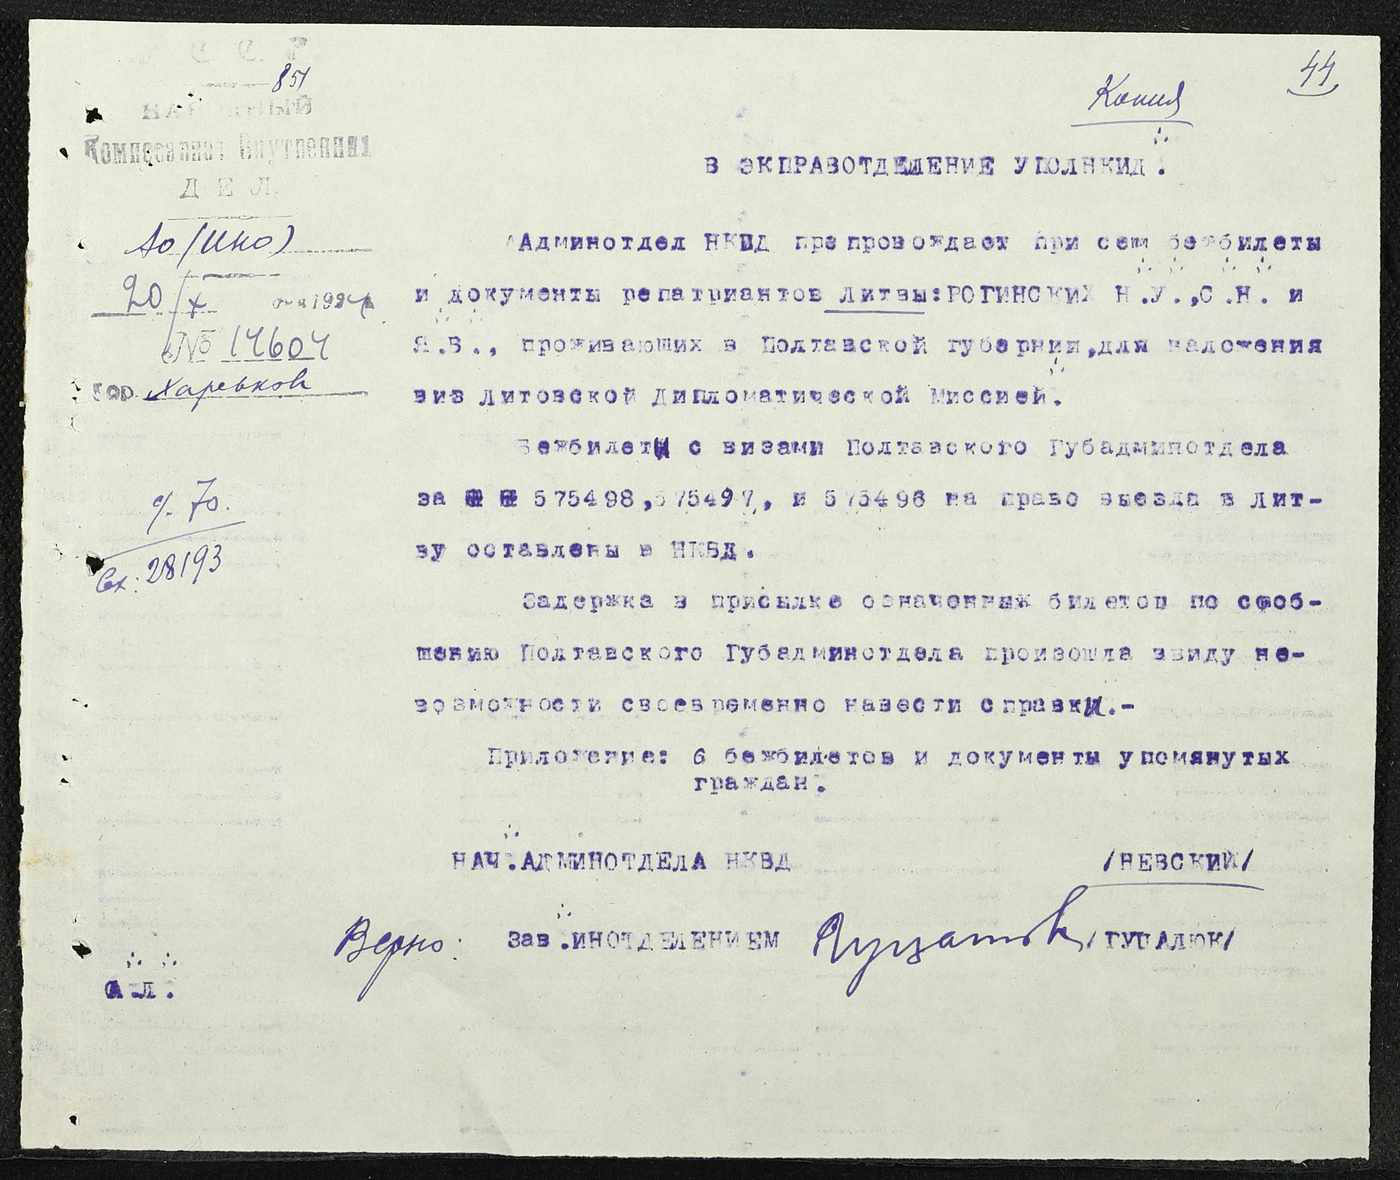 44
Копия
851
НАРОДНЫЙ
Комиссариат Внутренних
ДЕЛ
АО (ИНО)
20/X 1924
№ 14604
гор. Харьков
В ЭКПРАВОТДЕЛЕНИЕ УПОЛНКИД.
Админотдел НКВД препровождает при сем бежбилеты
и документы репатриантов Литвы:РОГИНСКИХ Н.У.,С.Н. и
Я.В., проживающих в Полтавской губернии,для наложения
виз Литовской Дипломатической Миссией.
Бежбилеты с визами Полтавского Губадминотдела
за №№ 575498,575497, и 575496 на право выезда в Лит-
ву оставлены в НКВД.
Задержка в присылке означенных билетов по сооб-
щению Полтавского Губадминотдела произошла ввиду не-
возможности своевременно навести справки.-
Приложение: 6 бежбилетов и документы упомянутых
граждан.
д. 70.
Вх. 28193
НАЧ.АДМИНОТДЕЛА НКВД /НЕВСКИЙ/
Верно: Зав.ИНОТДЕЛЕНИЕМ /ГУПАЛЮК/
А.Л.